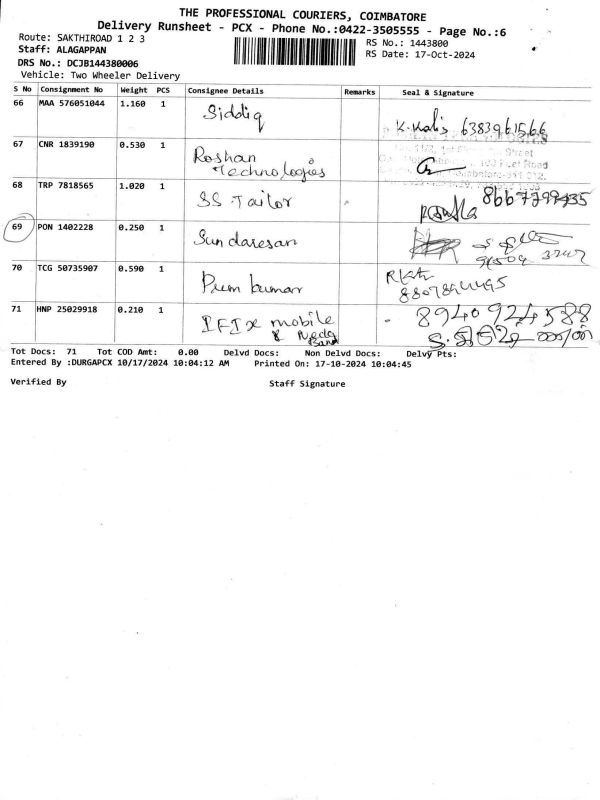 THE PROFESSIONAL COURIERS, COIMBATORE
Delivery Runsheet - PCX - Phone No.:0422-3505555 - Page No.:6
Route: SAKTHIROAD 1 2 3
RS No.: 1443800
Staff: ALAGAPPAN
RS Date: 17-Oct-2024
DRS No.: DCJB144380006
Vehicle: Two Wheeler Delivery
S No Consignment No Weight PCS Consignee Details Remarks Seal & Signature
66 MAA 576051044 1.160 1 Siddiq K. 6383961566
67 CNR 1839190 0.530 1 Roshan
Technologies
68 TRP 7818565 1.020 1 SS Tailor 8667399435
69 PON 1402228 0.250 1 Sundaresan
70 TCG 50735907 0.590 1 Prem kumar
71 HNP 25029918 0.210 1 IFIX mobile 8940924588
&
Tot Docs: 71 Tot COD Amt: 0.00 Delvd Docs: Non Delvd Docs: Delvy Pts:
Entered By :DURGAPCX 10/17/2024 10:04:12 AM Printed On: 17-10-2024 10:04:45
Verified By Staff Signature